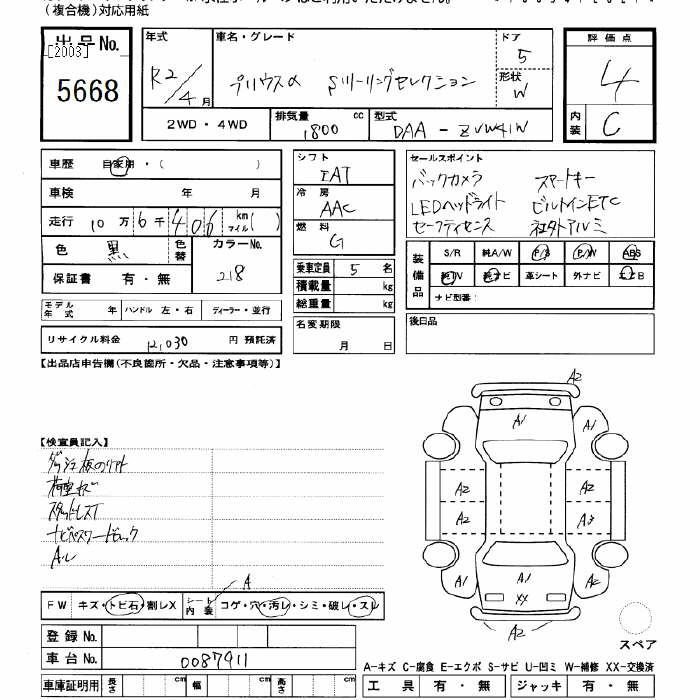 （複合機）対応用紙
出品No.
[2003]
5668
年式 車名・グレード ドア
R2/4月 プリウスα Sツーリングセレクション 5
形状 W
2WD・4WD 排気量 1800 cc 型式 DAA-ZVW41W
評価点
4
内装 C
車歴 自家用・（ ）
車検 年 月
走行 10万6千406 km マイル( )
色 黒 色替 カラーNo. 218
保証書 有・無
モデル年式 年 ハンドル 左・右 ディーラー・並行
リサイクル料金 12,030 円 預託済
シフト
FAT
冷房
AAC
燃料
G
乗車定員 5 名
積載量 kg
総重量 kg
名変期限
月 日
セールスポイント
バックカメラ スマートキー
LEDヘッドライト ビルトインETC
セーフティセンス 社外アルミ
装備品
S/R 純A/W P/S P/W ABS
純TV 純ナビ 革シート 外ナビ エアB
ナビ型番：
後日品
【出品店申告欄（不良箇所・欠品・注意事項等）】
【検査員記入】
荷室キズ
スタッドレスT
ナビパスワードロック
A・レ
FW キズ・トビ石・割レX シート内装 コゲ・穴・汚レ・シミ・破レ・スレ
A
登録No.
車台No. 0087911
車庫証明用 長さ cm 幅 cm 高さ cm
A2
A1 A1
A2 A2
A2 A3
A1 A1 A1
XX
A2
スペア
A-キズ C-腐食 E-エクボ S-サビ U-凹ミ W-補修 XX-交換済
工具 有・無 ジャッキ 有・無